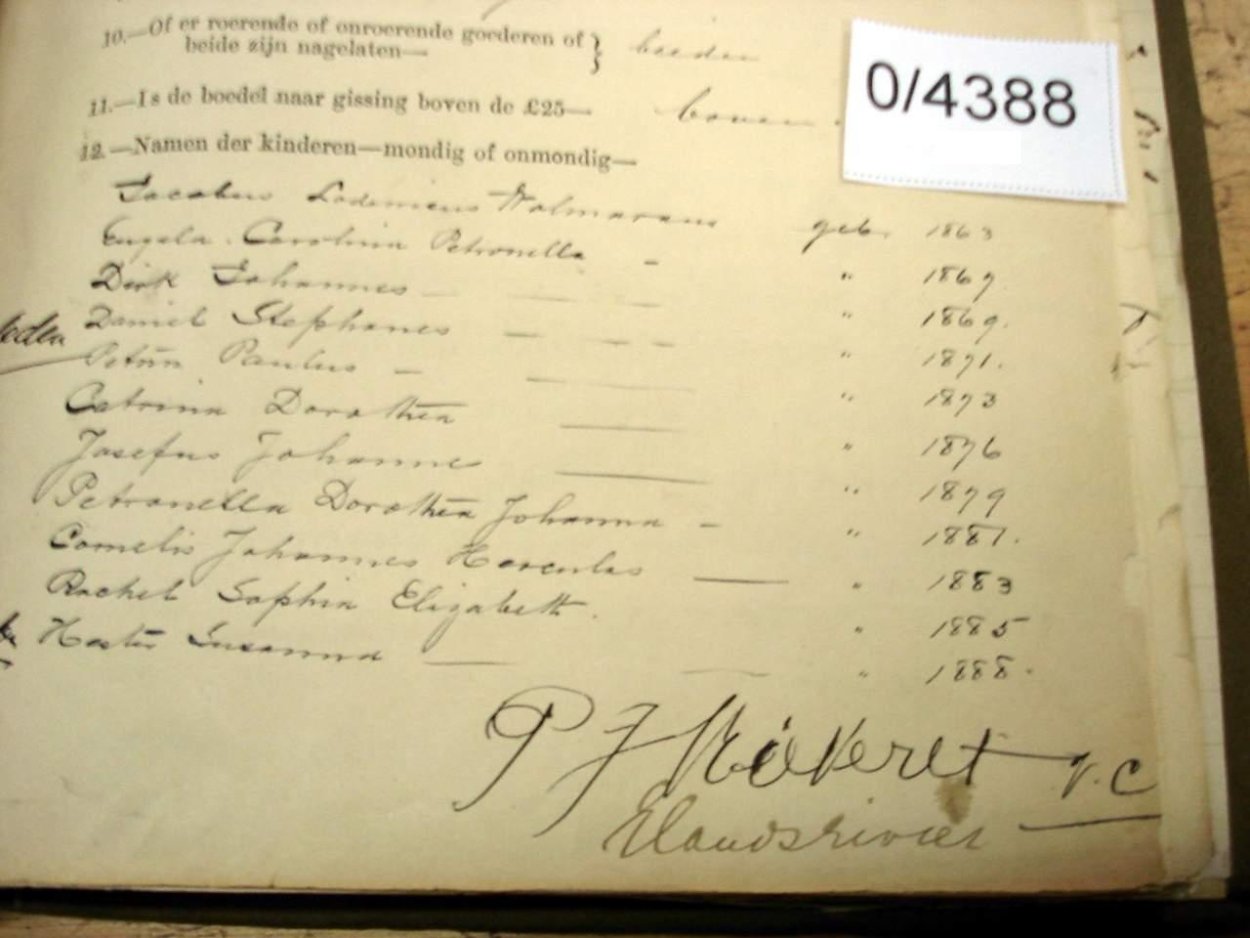 10.—Of er roerende of onroerende goederen of } beiden
beide zijn nagelaten—
0/4388
11.—Is de boedel naar gissing boven de £25— boven
12.—Namen der kinderen—mondig of onmondig—
Jacobus Lodewicus Wolmarans geb. 1863
Engela Carolina Petronella - " 1867
Dirk Johannes " 1869.
Daniel Stephanes " 1871.
Petrus Paulus - " 1873
Catrina Dorothea " 1876
Josefus Johannes " 1879
Petronella Dorothea Johanna - " 1881.
Cornelis Johannes Hercules " 1883
Rachel Sophia Elizabeth. " 1885
Hester Susanna " 1888.
P J
v.c
Elandsrivier